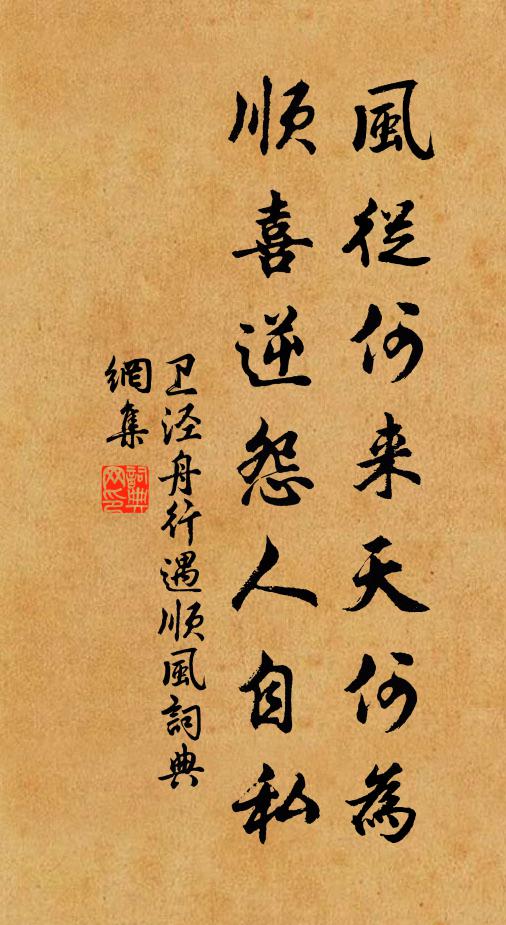 風從何来天何為
順喜逆怨人自私
卫泾舟行遇順風詞典
網集
詞典
网印